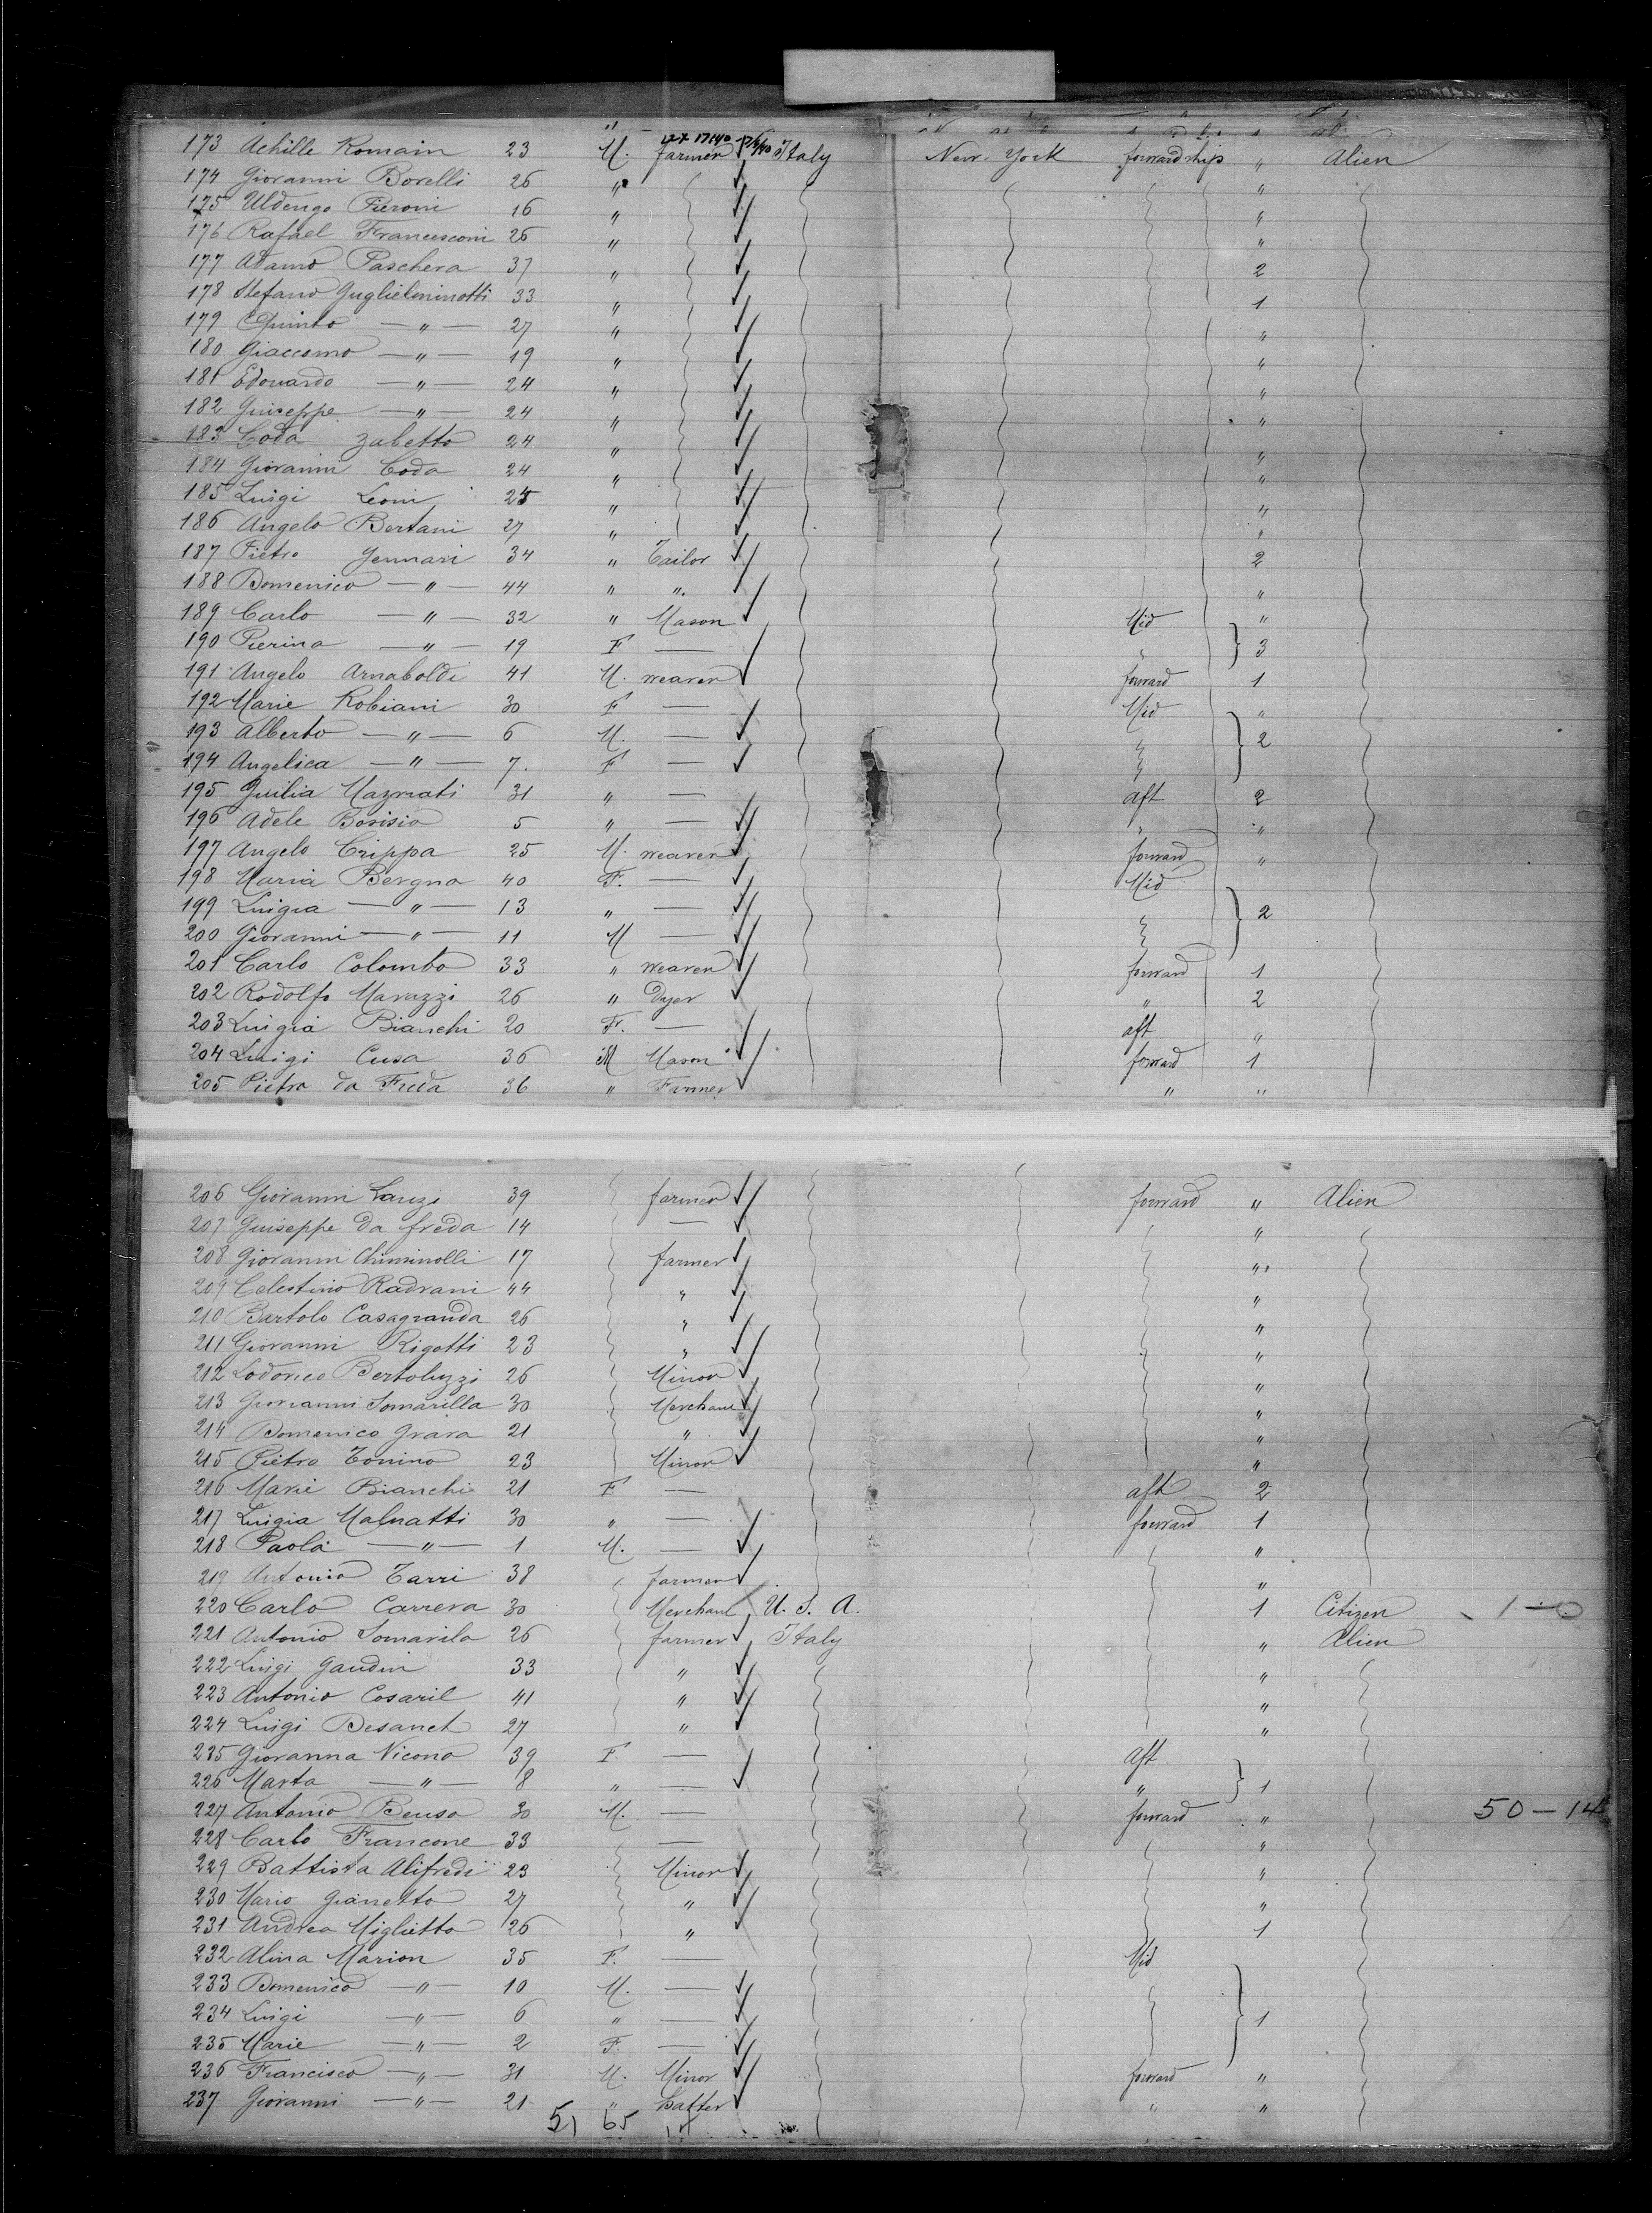 173 Achille Romain 23 M. farmer Italy New-York forwardship " Alien
174 Giovanni Borelli 26 " "
175 Uldengo Pieroni 16 " "
176 Rafael Francesconi 26 " "
177 Adamo Paschera 37 " 2
178 Stefano Guglielminotti 33 " 1
179 Quinto — " — 27 " "
180 Giaccomo — " — 19 " "
181 Edouardo — " — 24 " "
182 Guiseppe — " — 24 " "
183 Coda Zabetto 24 " "
184 Giovanni Coda 24 " "
185 Luigi Leoni 25 " "
186 Angelo Bertani 27 " "
187 Pietro Gennari 34 " Tailor 2
188 Domenico — " — 44 " " "
189 Carlo — " — 32 " Mason Mid "
190 Pierina — " — 19 F — " 3
191 Angelo Arnaboldi 41 M. weaver forward 1
192 Marie Robiani 30 F — Mid "
193 Alberto — " — 6 M. — 2
194 Angelica — " — 7. F —
195 Guilia Mazrati 31 " — aft 2
196 Adele Borisio 5 " — " "
197 Angelo Crippa 25 M. weaver forward "
198 Maria Bergna 40 F. — Mid
199 Luigia — " — 13 " — " 2
200 Giovanni — " — 11 M —
201 Carlo Colombo 33 " weaver forward 1
202 Rodolfo Maruzzi 26 " Dyer " 2
203 Luigia Bianchi 20 F. — aft "
204 Luigi Cusa 36 M Mason forward 1
205 Pietro da Freda 36 " Farmer " "
206 Giovanni Lanzi 39 farmer forward " Alien
207 Guiseppe da freda 14 — "
208 Giovanni Chiminolli 17 farmer "
209 Celestino Radrani 44 " "
210 Bartolo Casagranda 26 " "
211 Giovanni Rigotti 23 " "
212 Lodovico Bertoluzzi 26 Minor "
213 Giovanni Somarilla 30 Merchant "
214 Domenico Grava 21 " "
215 Pietro Tonino 23 Minor "
216 Marie Bianchi 21 F — aft 2
217 Luigia Malnatti 30 " — forward 1
218 Paola — " — 1 M. — "
219 Antonio Tarri 38 farmer "
220 Carlo Carrera 30 Merchant U. S. A. 1 Citizen 1—0
221 Antonio Somarila 26 farmer Italy " Alien
222 Luigi Gaudin 33 " "
223 Antonio Cosaril 41 " "
224 Luigi Desanet 27 " "
225 Giovanna Nicona 39 F — Aft
226 Marta — " — 8 " — " 1
227 Antonio Benso 30 M. — forward " 50—14
228 Carlo Francone 33 — "
229 Battista Alifredi 23 Minor "
230 Mario Gianetto 27 " "
231 Andrea Miglietto 26 " 1
232 Alina Marion 35 F. — Mid
233 Domenico — " — 10 M. —
234 Luigi — " — 6 " — 1
235 Marie — " — 2 F. —
236 Francisco — " — 31 M. Minor forward "
237 Giovanni — " — 21 " " "
51 65 14